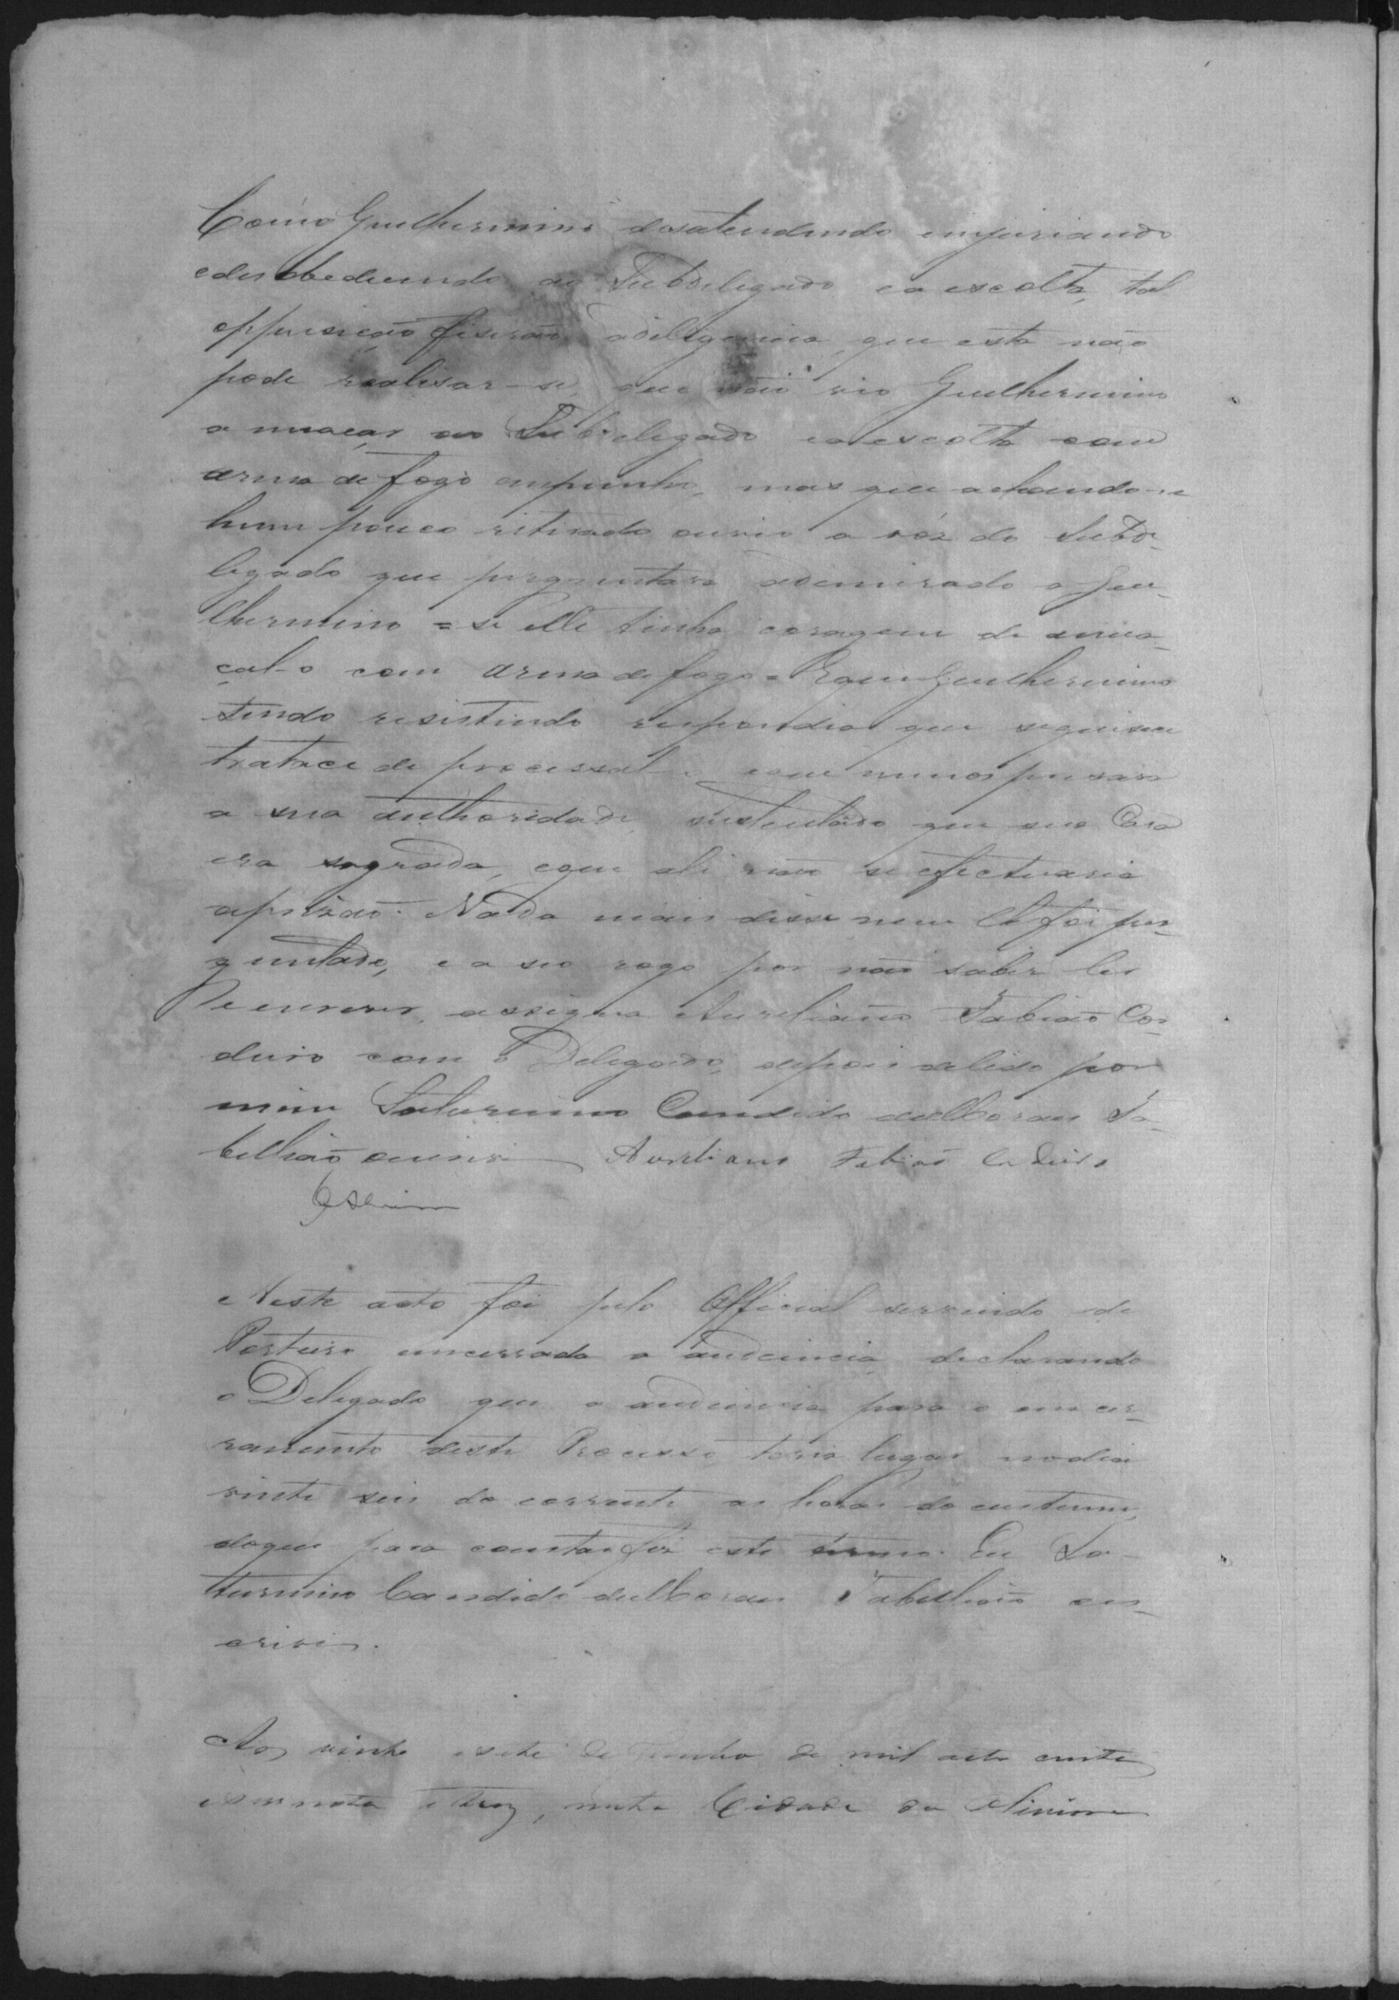 Como Guilhermino desatendendo injuriando
edesobedecendo ao Subdelegado ea escolta, tal
opposição fiserão adiligencia, que esta não
pode realisar-se, que não vio Guilhermino
a meaçar ao Subdelegado eaescolta com
arma de fogo empunho, mas que achando-se
hum pouco retirado ouvio a vóz do Subde-
legado que perguntara admirado a Gui-
lhermino = se elle tinha coragem de amea-
çal-o com arma de fogo = Eque Guilhermino
tendo resistindo respondia que seguisse
tratace de processal-o eque nunca pusara
a sua authoridade, sustentando que sua Casa
era sagrada, eque ali não se efectuaria
aprizão. Nada mais disse nem lhe foi per-
guntado, e a seo rogo por não saber ler
e escrever, assigna Aureliano Fabião Cor-
deiro com o Delegado, depois delido por
mim Saturnino Candido deMoraes Ta-
bellião escrivi Aureliano Fabião Cordeiro
Neste acto foi pelo Official servindo de
Porteiro encerrada a audiencia, declarando
o Delegado que a audiencia para o encer-
ramento deste Processo, teria lugar nodia
vinte seis do corrente as horas do custume,
doque para constar fiz este termo. Eu Sa-
turnino Candido deMoraes Tabellião es-
crivi.
Aos vinte esete de Junho de mil oito centos
esessenta etrez, nesta Cidade da